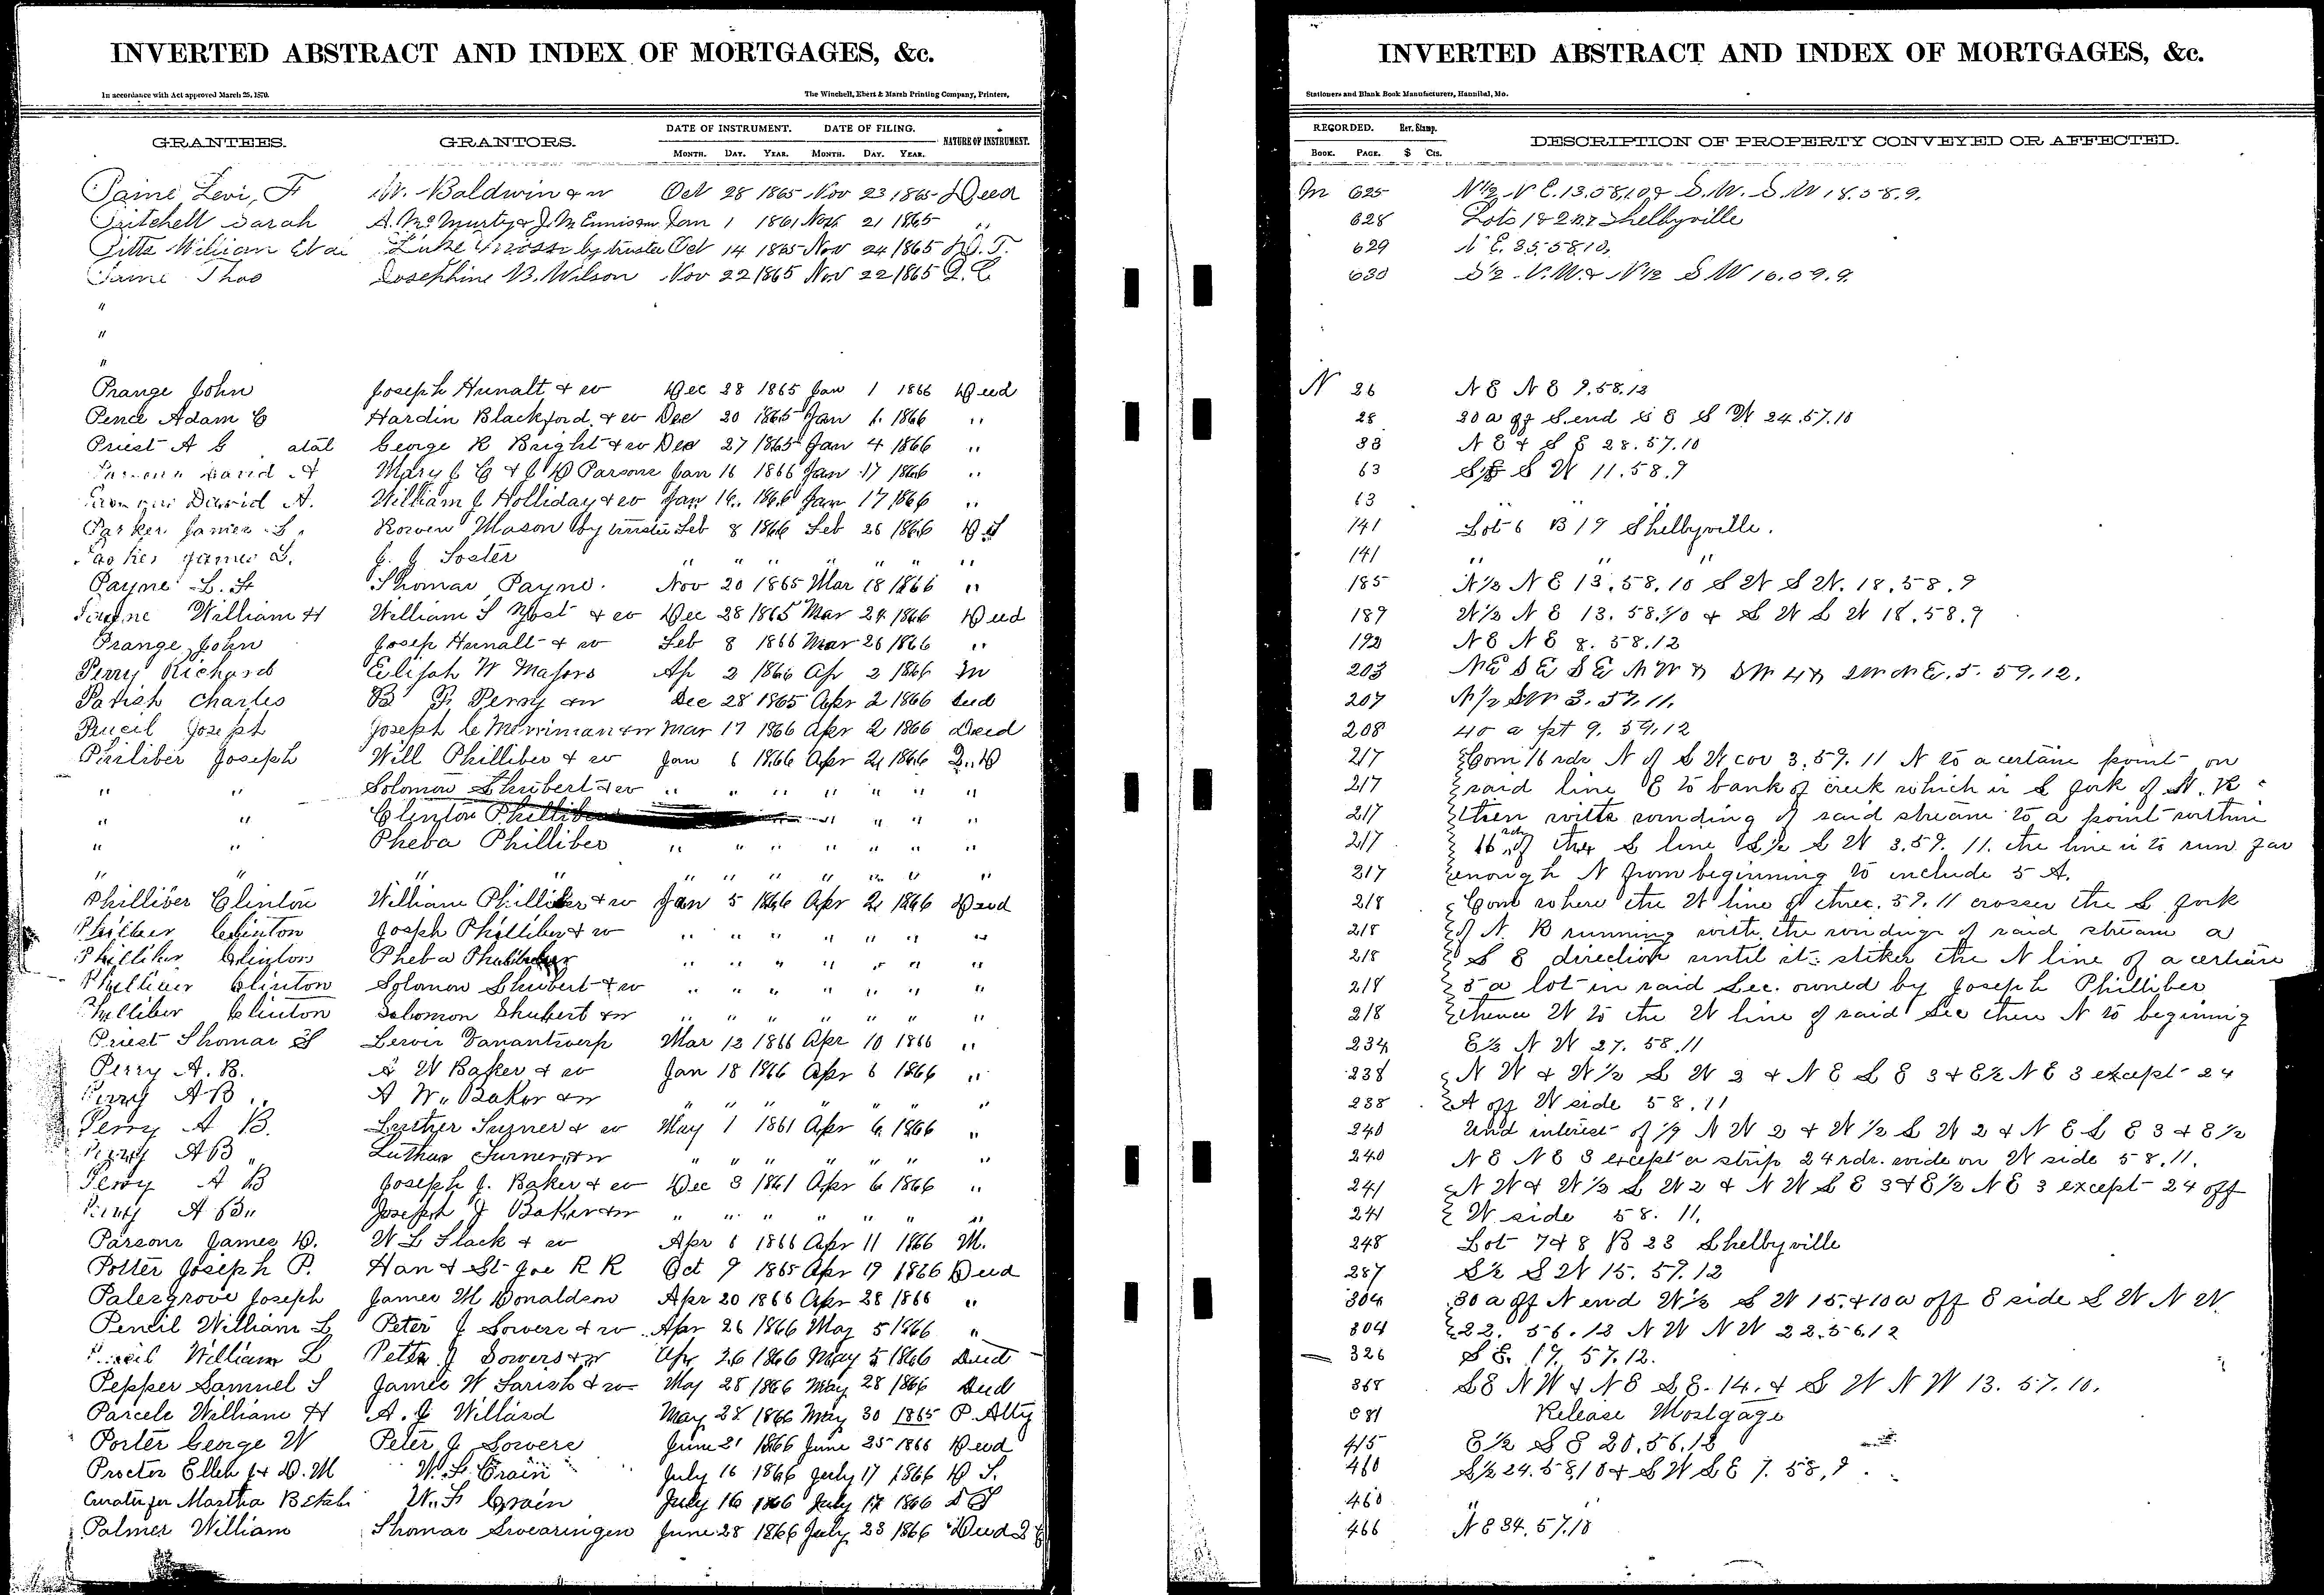 INVERTED ABSTRACT AND INDEX OF MORTGAGES, &c.
In accordance with Act approved March 25, 1870. The Winchell, Ebert & Marsh Printing Company, Printers,
GRANTEES. GRANTORS. DATE OF INSTRUMENT. DATE OF FILING. NATURE OF INSTRUMENT.
MONTH. DAY. YEAR. MONTH. DAY. YEAR.
Paine Levi, H W. Baldwin & w Oct 28 1865 Nov 23 1865 Deed
Pritchell Sarah A. McMurty & J. M Ennis Jan 1 1861 Nov 21 1865 "
Pitts William Et al Luke by trustee Oct 14 1865 Nov 24 1865 D. T.
Thos Josephine B. Wilson Nov 22 1865 Nov 22 1865 Q. C.
"
"
"
Prange John Joseph Hunalt & w Dec 28 1865 Jan 1 1866 Deed
Pence Adam C Hardin Blackford & w Dec 20 1865 Jan 1 1866 "
Priest A G etal George R Bright & w Dec 27 1865 Jan 4 1866 "
David A Mary J C & J D Parsons Jan 16 1866 Jan 17 1866 "
David A. William J Holliday & w Jan 16 1866 Jan 17 1866 "
Parker James S. Rowen Mason by trustee Feb 8 1866 Feb 26 1866 D T
James S. J. J Foster " " " " " " "
Payne L. H Thomas Payne. Nov 20 1865 Mar 18 1866 "
Payne William H William S Yost & w Dec 28 1865 Mar 24 1866 Deed
Prange, John Josep Hunalt & w Feb 8 1866 Mar 26 1866 "
Perry Richard Elijah W Majors Ap 2 1866 Ap 2 1866 M
Parish Charles B F. Perry & w Dec 28 1865 Apr 2 1866 Deed
Pencil Joseph Joseph C Merriman & w Mar 17 1866 Apr 2 1866 Deed
Philiber Joseph Will Philliber & w Jan 6 1866 Apr 2 1866 Q. D
" " Solomon Shubert & w " " " " " " "
" " Clinton Philliber " " "
" " Pheba Philliber " " " " " " "
" " " " " " " " " "
Philliber Clinton William Philliber & w Jan 5 1866 Apr 2 1866 Deed
Philliber Clinton Joseph Philliber & w " " " " " " "
Philliber Clinton Pheba Philliber " " " " " " "
Philliber Clinton Solomon Shubert & w " " " " " " "
Philliber Clinton Solomon Shubert & w " " " " " " "
Priest Thomas S Lewis Vanantwerp Mar 12 1866 Apr 10 1866 "
Perry A. B. A W Baker & w Jan 18 1866 Apr 6 1866 "
Perry A B " A W. Baker & w " " " " " " "
Perry A B. Luther Turner & w May 1 1861 Apr 6 1866 "
Perry A B " Luthur Turner & w " " " " " " "
Perry A B Joseph J. Baker & w Dec 3 1861 Apr 6 1866 "
Perry A B " Joseph J Baker & w " " " " " " "
Parsons James D. W L Slack & w Apr 6 1866 Apr 11 1866 M.
Potter Joseph P. Han & St Joe R R Oct 9 1865 Apr 19 1866 Deed
Palesgrove Joseph James M Donaldson Apr 20 1866 Apr 28 1866 "
Pencil William L Peter J Sowers & w Apr 26 1866 May 5 1866 "
Pencil William L Peter J Sowers & w Apr 26 1866 May 5 1866 Deed
Pepper Samuel S James W Parish & w May 28 1866 May 28 1866 Deed
Parcels William H A. J Willard May 28 1866 May 30 1865 P. Atty
Porter George W Peter J Sowers June 21 1866 June 25 1866 Deed
Procter Ellen J & D. M W. F. Crain July 16 1866 July 17 1866 D T.
Curator for Martha B etal W. F Crain July 16 1866 July 17 1866 D T
Palmer William Thomas Swearingen June 28 1866 July 23 1866 Deed Q C
INVERTED ABSTRACT AND INDEX OF MORTGAGES, &c.
Stationers and Blank Book Manufacturers, Hannibal, Mo.
RECORDED. Rev. Stamp. DESCRIPTION OF PROPERTY CONVEYED OR AFFECTED.
BOOK. PAGE. $ Cts.
M 625 N 1/2 N E. 13.58.10 & S.W. S W 18.58.9.
628 Lots 1 & 2 Shelbyville
629 N E. 35.58.10.
630 S 1/2 N. W. & N 1/2 S W 16.59.9.
N 26 N E N E 9.58.12
28 20 a off S. end S E S W 24.57.10
33 N E & S E 28.57.10
63 S E S W 11.58.9
63 " " "
141 Lot 6 B 19 Shelbyville.
141 " " "
185 N 1/2 N E 13.58.10 S W S W. 18.58.9
189 W 1/2 N E 13.58.10 & S W S W 18.58.9
192 N E N E 8.58.12
203 NE SE SE N W & S W 4 & SW NE. 5. 59.12.
207 N 1/2 SW 3.57.11.
208 40 a pt 9. 59.12
217 Com 16 rds N of S W cor 3.59.11 N to a certain point on
217 said line E to bank of creek which is S fork of N. R
217 then with wonding of said stream to a point within
217 16 rds of the S line S 1/2 S W 3.59.11. the line is to run far
217 enough N from beginning to include 5 A.
218 Com where the W line of three. 59.11 crosses the S fork
218 of N. R running with the windings of said stream a
218 S E direction until it strikes the N line of a certain
218 5 a lot in said Sec. owned by Joseph Philliber
218 thence W to the W line of said Sec then N to beginning
234 E 1/2 N W 27. 58.11
238 N W & W 1/2 S W 2 & N E S E 3 & E 1/2 N E 3 except 24
238 A off W side 58.11
240 Und interest of 1/9 N W 2 & W 1/2 S W 2 & N E S E 3 & E 1/2
240 N E N E 3 except a strip 24 rds. wide on W side 58.11.
241 N W & W 1/2 S W 2 & N W S E 3 & E 1/2 N E 3 except 24 off
241 W side 58. 11.
248 Lot 7 & 8 B 23 Shelbyville
287 S 1/2 S W 15. 59.12
304 30 a off N end W 1/2 S W 15. & 10 a off E side S W N W
304 22. 56.12 N W N W 22.56.12
326 S E. 17. 57.12.
368 S E N W & N E S E. 14. & S W N W 13. 57.10.
381 Release Mortgage
415 E 1/2 S E 20.56.12
460 S 1/2 24.58.10 & S W S E 7. 58.9
460 "
466 N E 34.57.10